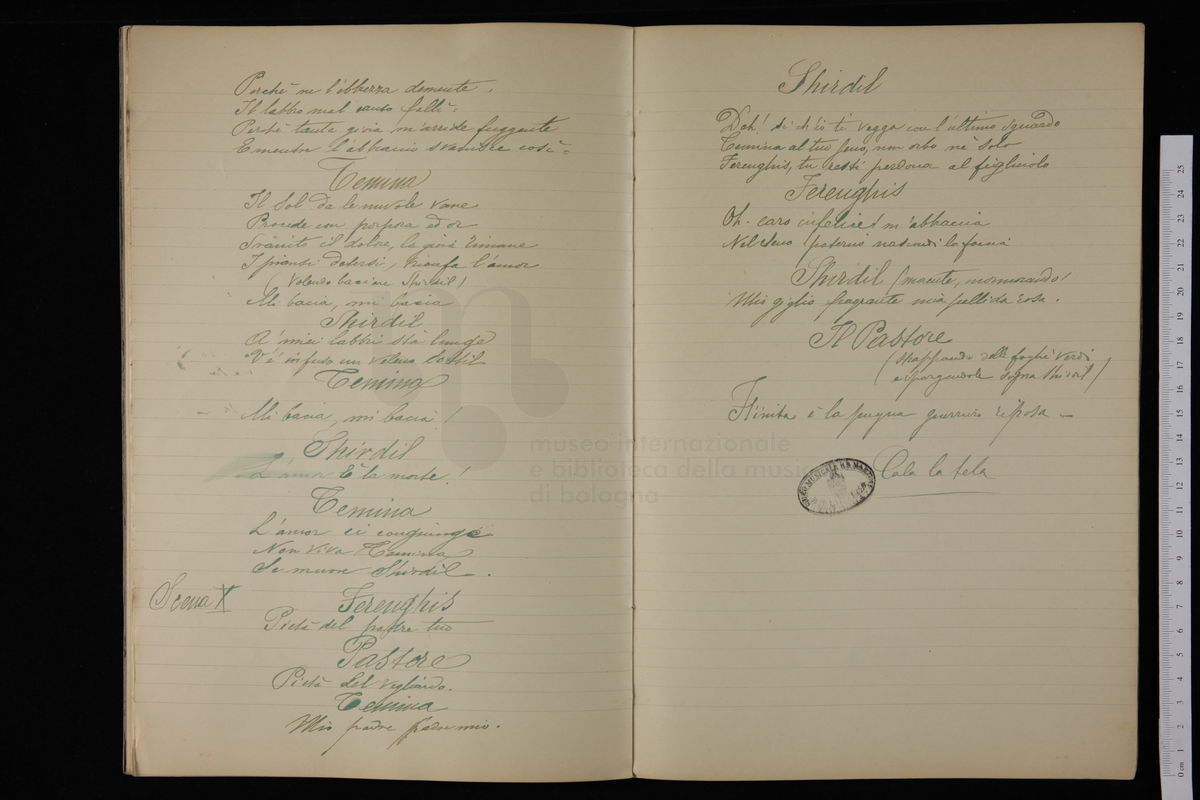 Perchè ne l'ebbrezza demente
Il labbro mal santo fallì
Perchè tanta gioia m'arride fuggente
E mentre l'abbraccio svanire così
Temina
Il Sol da le nuvole vane
Procede con porpora ed or
Svanito il dolore, la gioia rimane
I pianti detersi, trionfa l'amor
Volendo baciare Shirdil)
Mi bacia, mi bacia
Shirdil
A' miei labbri stà lunge
V'è infuso un veleno sottil
Temina
Mi bacia, mi bacia!
Shirdil
L'amor È la morte!
Temina
L'amor ci congiunge
Non viva Temina
Se muore Shirdil.
Scena X
Ferenghis
Pietà del padre tuo
Pastore
Pietà del vegliardo.
Temina
Mio padre padre mio.
Shirdil
Deh! sì ch'io ti vegga con l'ultimo sguardo
Temina al tuo seno, non orbo nè solo
Ferenghis, tu resti perdona al figliuolo
Ferenghis
Oh. caro infelice! m'abbraccia
Nel seno paterno nascondi la faccia
Shirdil (morente, mormorando)
Mio giglio fragrante mia pallida rosa.
Il Pastore
(strappando delle foglie verdi
e spargendole sopra Shirdil)
Finita è la pugna guerriero riposa
Cala la tela
museo internazionale
e biblioteca della musica
di bologna
25
24
23
22
21
20
19
18
17
16
15
14
13
12
11
10
9
8
7
6
5
4
3
2
1
0 cm